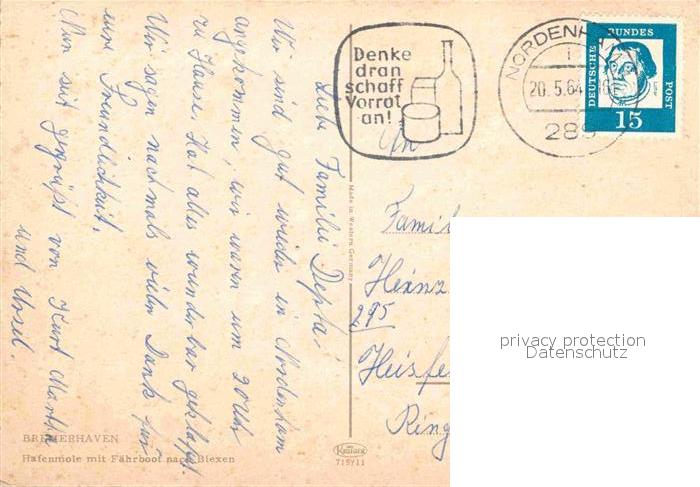 Liebe Familie Depta!
Wir sind gut wieder in Nordenham
angekommen, wir waren um 20 Uhr
zu Hause. Hat alles wunderbar geklappt.
Wir sagen nochmals vielen Dank für
eure Freundlichkeit.
Nun seit gegrüßt von Kurt Martha
und Ursel.
BREMERHAVEN
Hafenmole mit Fährboot nach Blexen
Made in Western Germany
Krüger
719/11
Denke
dran
schaff
Vorrat
an!
NORDENHAM
20.5.64
289
DEUTSCHE
BUNDES
POST
15
An
Famil
Heinz
295
Heisfe
Ring
privacy protection
Datenschutz